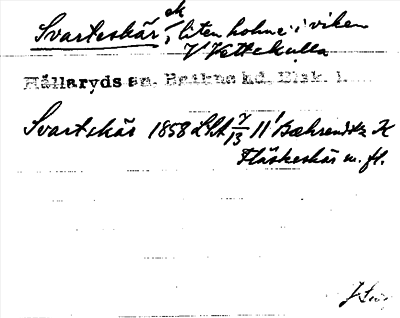 Svarteskär, ek liten holme i viken
V Vettekulla
Hällaryds sn. Bräkne hd. Blek. l.
Svartskär 1858 LSA 7/13 11' Bæhrendtz K
Fläskeskär m. fl.